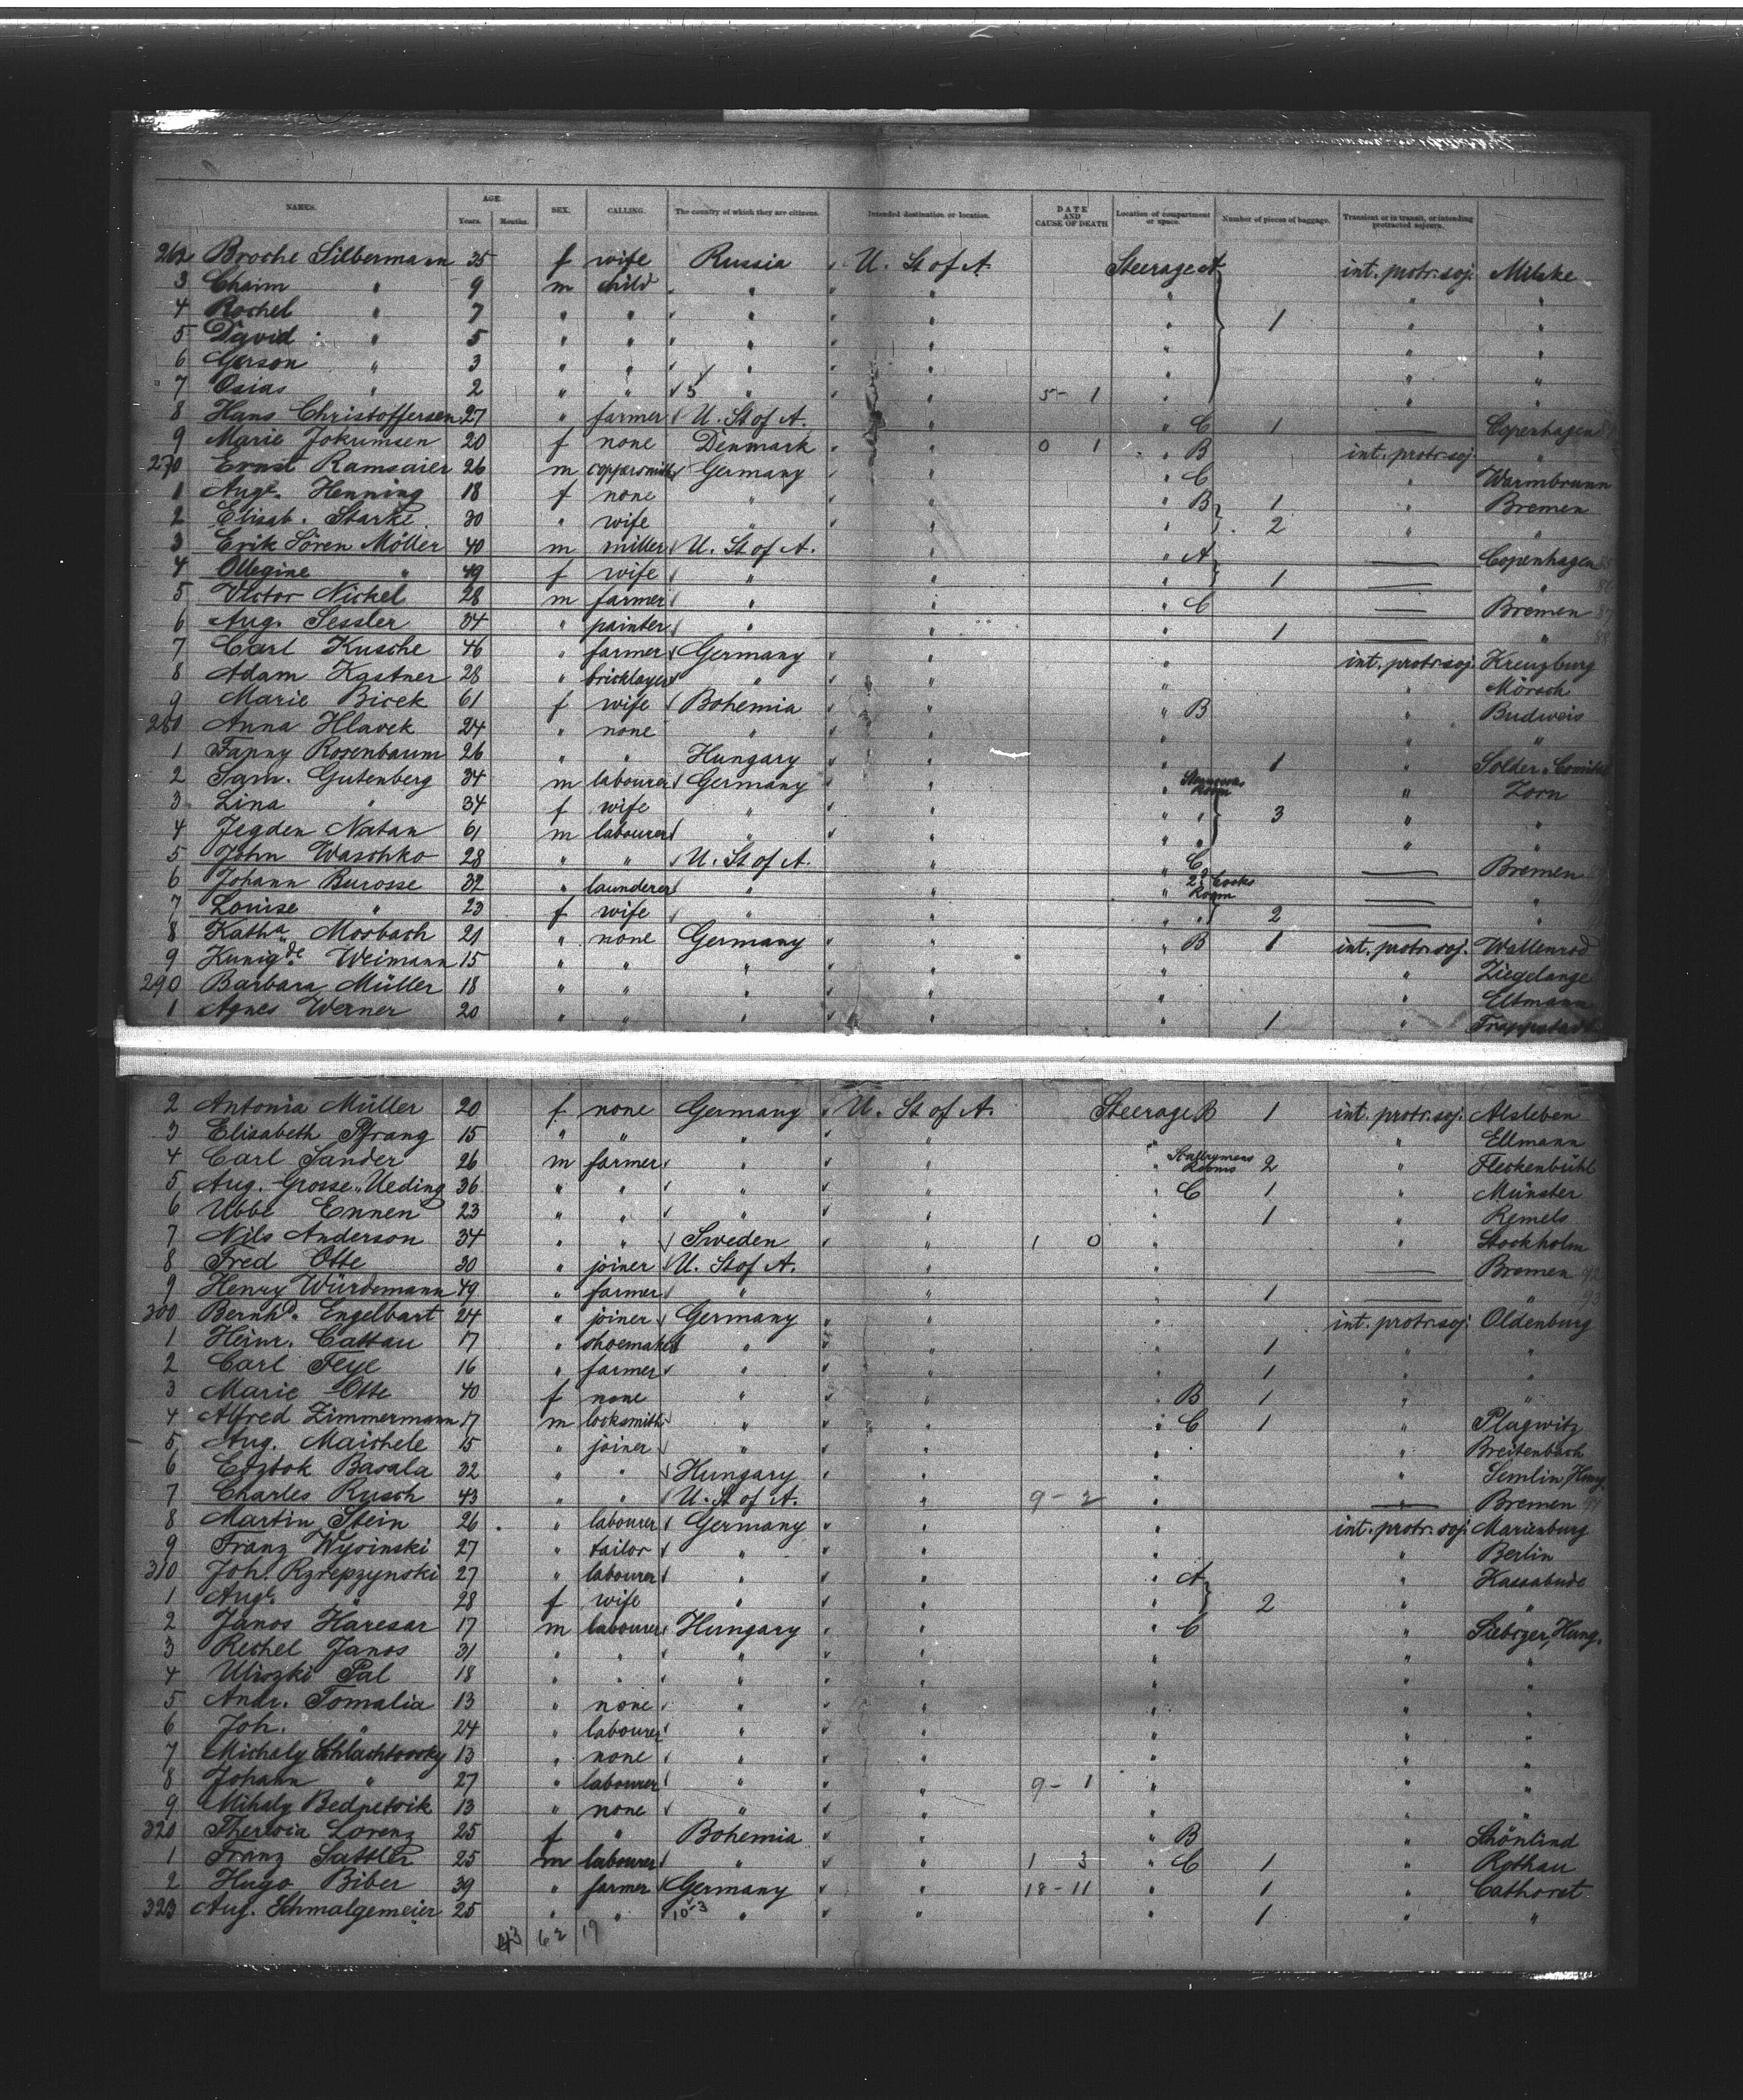 NAMES. AGE. Years. Months. SEX. CALLING. The country of which they are citizens. Intended destination or location. DATE AND CAUSE OF DEATH Location of compartment or space. Number of pieces of baggage. Transient or in transit, or intending protracted sojourn.
262 Broche Silbermann 35 f wife Russia U. St of A. Steerage A int. protr. soj. Milske
3 Chaim " 9 m child " " " " "
4 Rochel " 7 " " " " " 1 " "
5 David " 5 " " " " " " "
6 Gerson " 3 " " " " " " "
7 Osias " 2 " " 5 " " 5 - 1 " " "
8 Hans Christoffersen 27 " farmer U. St of A. " " C 1 — Copenhagen
9 Marie Jokumsen 20 f none Denmark " 0 1 " B int. protr. soj. "
270 Ernst Ramsaier 26 m coppersmith Germany " " C " Warmbrunn
1 Auge. Henning 18 f none " " " B 1 " Bremen
2 Elisab. Starke 30 " wife " " " 2 " "
3 Erik Sören Möller 40 m miller U. St of A. " " A — Copenhagen 85
4 Ollegine " 49 f wife " " " 1 — " 86
5 Victor Nickel 28 m farmer " " " C — Bremen 87
6 Aug. Sessler 34 " painter " " " 1 — " 88
7 Carl Kusche 46 " farmer Germany " " int. protr. soj. Kreuzburg
8 Adam Kastner 28 " bricklayer " " " " Mörsch
9 Marie Bicek 61 f wife Bohemia " " B " Budweis
280 Anna Hlavek 24 " none " " " " "
1 Fanny Rosenbaum 26 " " Hungary " " 1 "
2 Sam. Gutenberg 34 m labourer Germany " " Room " Zorn
3 Lina " 34 f wife " " " " 3 " "
4 Jegden Natan 61 m labourer " " " " " "
5 John Waschko 28 " " U. St of A. " " C — Bremen
6 Johann Burosse 32 " launderer " " " 2d Cooks Room — "
7 Louise " 23 f wife " " " " 2 — "
8 Katha. Mosbach 21 " none Germany " " B 1 int. protr. soj. Wallenrod
9 Kunigde. Weimann 15 " " " " " " Ziegelange
290 Barbara Müller 18 " " " " " " Eltmann
1 Agnes Werner 20 " " " " " 1 " Trappstadt
2 Antonia Müller 20 f none Germany U. St of A. Steerage B 1 int. protr. soj. Alsleben
3 Elisabeth Pfrang 15 " " " " " " Ellmann
4 Carl Sander 26 m farmer " " " Rooms 2 " Fleckenbühl
5 Aug. Grosse-Ueding 36 " " " " " C 1 " Münster
6 Ubbe Ennen 23 " " " " " 1 " Remels
7 Nils Anderson 34 " " Sweden " 1 0 " " Stockholm
8 Fred Otte 30 " joiner U. St of A. " " — Bremen 92
9 Henry Würdemann 49 " farmer " " " 1 — " 93
300 Bernhd. Engelbart 24 " joiner Germany " " int. protr. soj. Oldenburg
1 Heinr. Cattau 17 " shoemaker " " " 1 " "
2 Carl Feye 16 " farmer " " " 1 " "
3 Marie Otte 40 f none " " " B 1 " "
4 Alfred Zimmermann 17 m locksmith " " " C 1 " Plagwitz
5 Aug. Maichele 15 " joiner " " " " Breitenbach
6 Basala 32 " " Hungary " " " Semlin, Hung.
7 Charles Rusch 43 " " U. St of A. " 9 - 2 " — Bremen
8 Martin Stein 26 " labourer Germany " " int. protr. soj. Marienburg
9 Franz Wysinski 27 " tailor " " " " Berlin
310 Joh. Rzrepzynski 27 " labourer " " " A " Kassabude
1 Auge. " 28 f wife " " " 2 " "
2 Janos Haresar 17 m labourer Hungary " " C " Hung.
3 Rechel Janos 31 " " " " " " "
4 Uliszki Pal 18 " " " " " " "
5 Andr. Tomalia 13 " none " " " " "
6 Joh. " 24 " labourer " " " " "
7 Michaly Schlachtowsky 13 " none " " " " "
8 Johann " 27 " labourer " " 9 - 1 " " "
9 Mihaly Bedpetvik 13 " none " " " " "
320 Theresia Lorenz 25 f " Bohemia " " B " Schönlind
1 Franz Sattler 25 m labourer " " 1 - 3 " C 1 " Rothau
2 Hugo Biber 39 " farmer Germany " 18 - 11 " 1 " Cathoret
323 Aug. Schmalgemeier 25 " " 10-3 " " " 1 " "
43 62 19